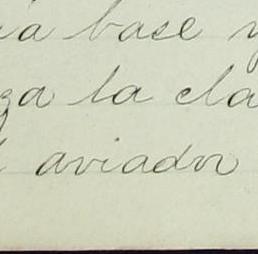 ia base y
za la cla
l aviador